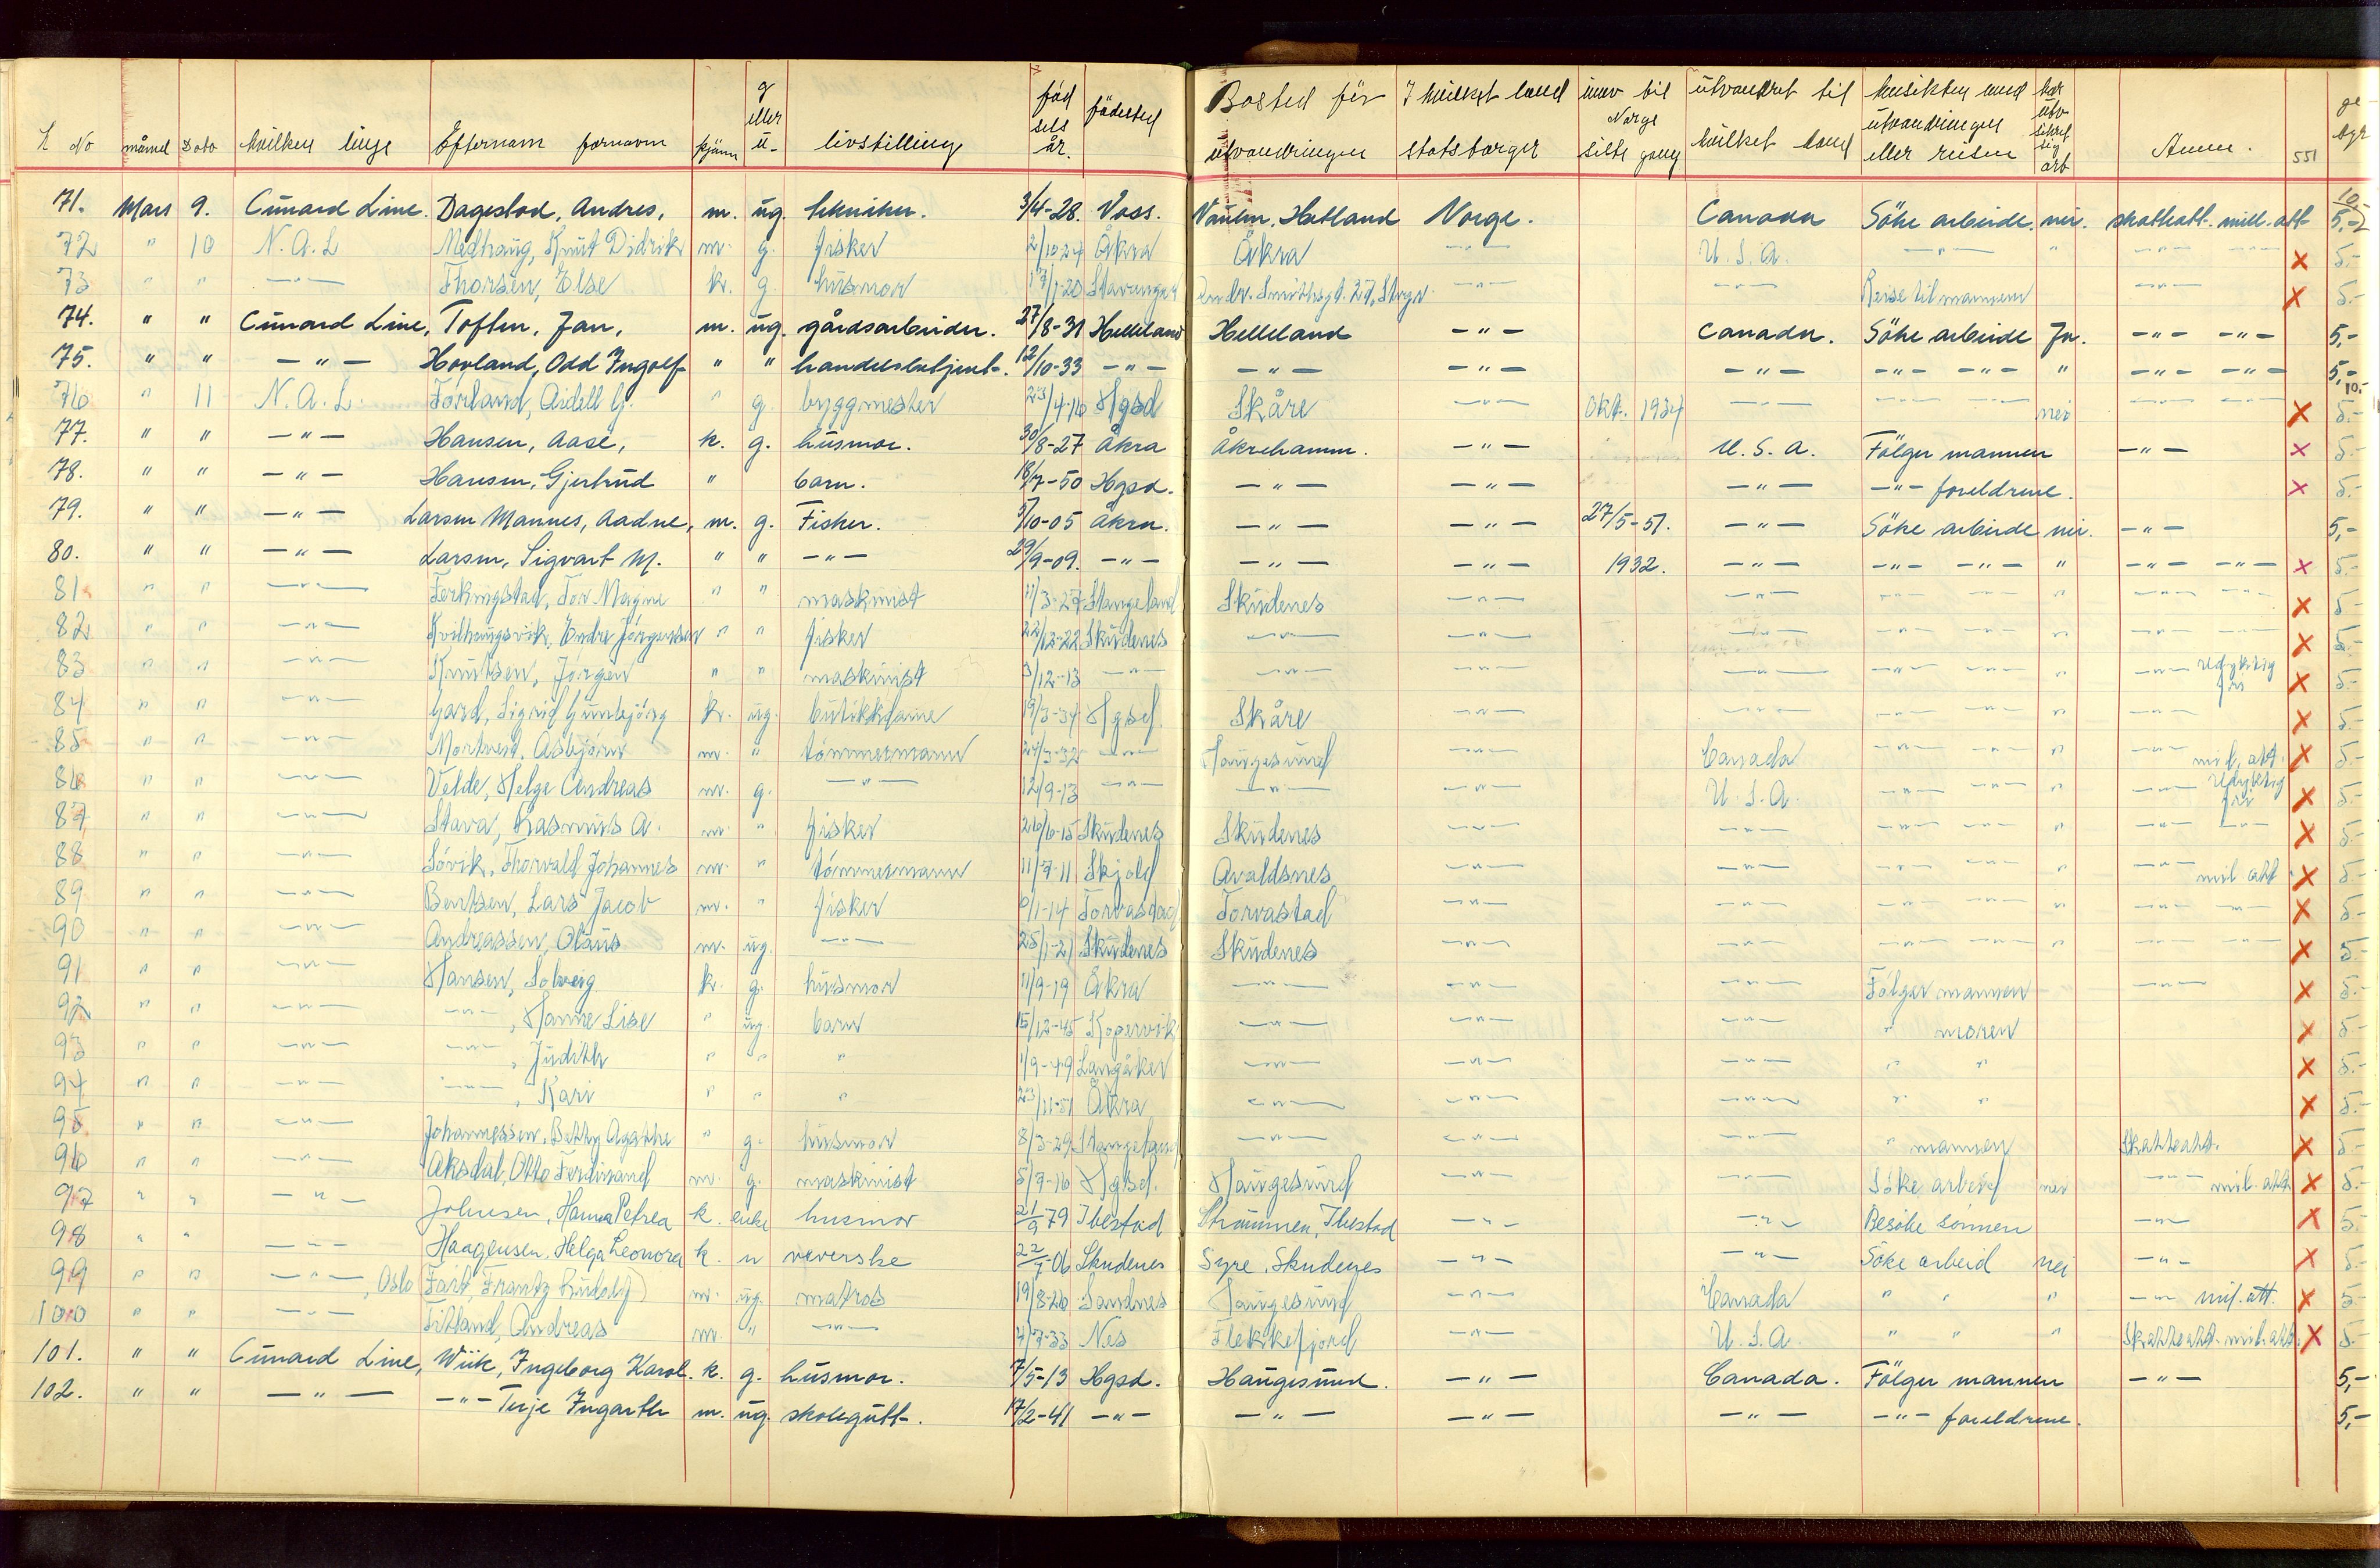 L No måned Dato Hvilken linje Efternavn fornavn kjønn g eller u- livstilling fødselsår. fødested Bosted før utvandringen I hvilket land statsborger innv til Norge siste gang utvandret til hvilket land hensikten med utvandringen eller reisen har utv sikret sig arb Anm. 551 gebyr
71. Mars 9. Cunard Line. Dagestad, Andres, m. ug. tekniker. 3/4-28. Voss. Hetland Norge. Canada Söke arbeide. nei. skatteatt. mil. att 10 5,-
72 " 10 N.A.L Medhaug, Knut Didrik m. g. fisker 2/10-24 Åkra Åkra -"- U.S.A. -"- " -"- -"- x 5.-
73 " " -"- Thorsen, Else k. g. husmor 17/1-20 Stavanger 27, Stvgr. -"- -"- Reise til mannen -"- x 5.-
74. " " Cunard Line, Toften, Jan, m. ug. gårdsarbeider. 27/8-31 Helleland Helleland -"- Canada. Söke arbeide Ja. -"- -"- 5,-
75. " " -"- Hovland, Odd Ingolf " " handelsbetjent. 12/10-33 -"- -"- -"- -"- -"- -"- " -"- -"- 5,-
76 " 11 N.A.L. Førland, Aidell G. " g. byggmester 23/4-16 Hgsd Skåre -"- Okt. 1934 -"- -"- -"- nei -"- -"- x 10.- 5.-
77. " " -"- Hansen, Aase, k. g. husmor. 30/8-27 Åkra Åkrehamn. -"- U.S.A. Fölger mannen -"- x 5.-
78. " " -"- Hansen, Gjertrud " barn. 18/7-50 Hgsd. -"- -"- -"- -"- foreldrene. x 5.-
79. " " -"- Larsen Mannes, Aadne, m. g. Fisker. 3/10-05 Åkra. -"- -"- 27/5-51. -"- Söke arbeide nei. -"- 5,-
80. " " -"- Larsen, Sigvart M. " " -"- 29/9-09. -"- -"- -"- 1932. -"- -"- -"- " -"- -"- x 5.-
81 " " -"- Ferkingstad, Tor Magne " " maskinist 11/3-27 Stangeland Skudenes -"- -"- -"- -"- " -"- -"- x 5.-
82 " " -"- Kvilhaugsvik, Endre Jørgensen " " fisker 22/12-22 Skudenes -"- -"- -"- -"- -"- " -"- -"- x 5.-
83 " " -"- Knutsen, Jørgen " " maskinist 3/12-13 -"- -"- -"- -"- -"- -"- " -"- Udyktig for x 5.-
84 " " -"- Gard, Sigrid Gunbjørg k. ug. butikkdame 19/3-34 Hgsd. Skåre -"- -"- -"- -"- " -"- x 5.-
85 " " -"- Mortveit, Asbjørn m. " tømmermann 24/3-32 -"- Haugesund -"- Canada -"- -"- " -"- mil. att. x 5.-
86 " " -"- Velde, Helge Andreas m. g. -"- 12/9-13 -"- -"- -"- U.S.A. -"- -"- " -"- Udyktig for x 5.-
87 " " -"- Stava, Rasmus A. m. " fisker 26/6-15 Skudenes Skudenes -"- -"- -"- -"- " -"- -"- x 5.-
88 " " -"- Søvik, Thorvald Johannes m. " tømmermann 11/7-11 Skjold Avaldsnes -"- -"- -"- -"- " -"- mil att x 5.-
89 " " -"- Bentsen, Lars Jacob m. " fisker 6/1-14 Torvastad Torvastad -"- -"- -"- -"- " -"- -"- x 5.-
90 " " -"- Andreassen, Olaus m. ug. -"- 25/1-21 Skudenes Skudenes -"- -"- -"- -"- " -"- -"- x 5.-
91 " " -"- Hansen, Solveig k. g. husmor 11/9-19 Åkra -"- -"- -"- Følger mannen -"- x 5.-
92 " " -"- -"-, Hanne Lise " ug. barn 15/12-45 Kopervik -"- -"- -"- " moren x 5.-
93 " " -"- -"-, Judith " " " 1/9-49 Langåker -"- -"- -"- " " x 5.-
94 " " -"- -"-, Kari " " " 23/11-51 Åkra -"- -"- -"- " " x 5.-
95 " " -"- Johannessen, Betty Agathe " g. husmor 8/3-29 Stangeland -"- -"- -"- " mannen Skatteatt. x 5.-
96 " " -"- Aksdal, Otto Ferdinand m. g. maskinist 5/7-16 Hgsd. Haugesund -"- -"- Søke arbeid nei -"- mil. att x 5.-
97 " " -"- Johnsen, Hanna Petrea k. enke husmor 21/9 79 Ibestad Ibestad -"- -"- Besøke sønnen -"- x 5.-
98 " " -"- Haagensen, Helga Leonora k. u veverske 22/1-06 Skudenes Syre, Skudenes -"- -"- Søke arbeid nei -"- x 5.-
99 " " -"-, Oslo Frantz Rudolf m. ug. matros 19/8-26 Sandnes Haugesund -"- Canada " " " -"- mil. att. x 5.-
100 " " -"- Titland, Andreas m. " -"- 4/7-33 Nes Flekkefjord -"- U.S.A. " " " Skatteatt. mil. att. x 5.-
101. " " Cunard Line, Wiik, Ingeborg Karol. k. g. husmor. 7/5-13 Hgsd. Haugesund. -"- Canada. Fölger mannen -"- 5,-
102. " " -"- -"- Terje Ingarth m. ug. skolegutt. 17/2-41 -"- -"- -"- -"- -"- foreldrene. 5,-